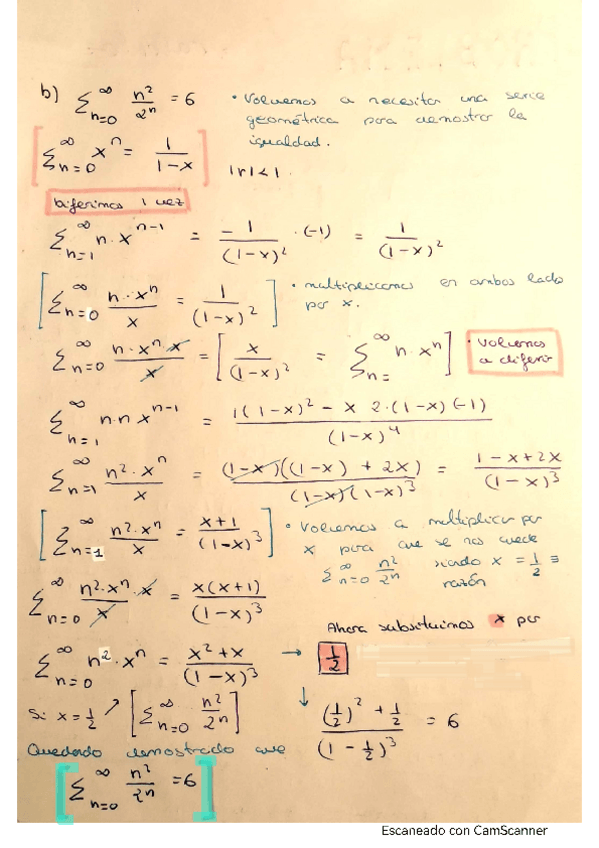 b) ∑_{n=0}^{∞} n²/2ⁿ = 6 • Volvemos a necesitar una serie
geométrica para demostrar la
igualdad.
[∑_{n=0}^{∞} xⁿ = 1/(1-x)] |r| < 1.
Diferimos 1 vez
∑_{n=1}^{∞} n·x^{n-1} = -1/(1-x)² ·(-1) = 1/(1-x)²
[∑_{n=0}^{∞} n·xⁿ/x = 1/(1-x)²] • multiplicamos en ambos lado
por x.
∑_{n=0}^{∞} n·xⁿ·x/x = [x/(1-x)² = ∑_{n=}^{∞} n·xⁿ] • Volvemos
a diferir
∑_{n=1}^{∞} n·n x^{n-1} = (1(1-x)² - x 2·(1-x)(-1))/(1-x)⁴
∑_{n=1}^{∞} n²·xⁿ/x = (1-x)((1-x) + 2x)/((1-x)(1-x)³) = (1-x+2x)/(1-x)³
[∑_{n=1}^{∞} n²·xⁿ/x = (x+1)/(1-x)³] • Volvemos a multiplicar por
x para que se nos quede
∑_{n=0}^{∞} n²/2ⁿ siendo x = 1/2 ≡
razón
∑_{n=0}^{∞} n²·xⁿ·x/x = x(x+1)/(1-x)³
Ahora substituimos x por
∑_{n=0}^{∞} n²·xⁿ = (x²+x)/(1-x)³ → 1/2
Si x = 1/2 ↗ [∑_{n=0}^{∞} n²/2ⁿ] ↓ ((1/2)² + 1/2)/(1 - 1/2)³ = 6
Quedando demostrado que
[∑_{n=0}^{∞} n²/2ⁿ = 6]
Escaneado con CamScanner